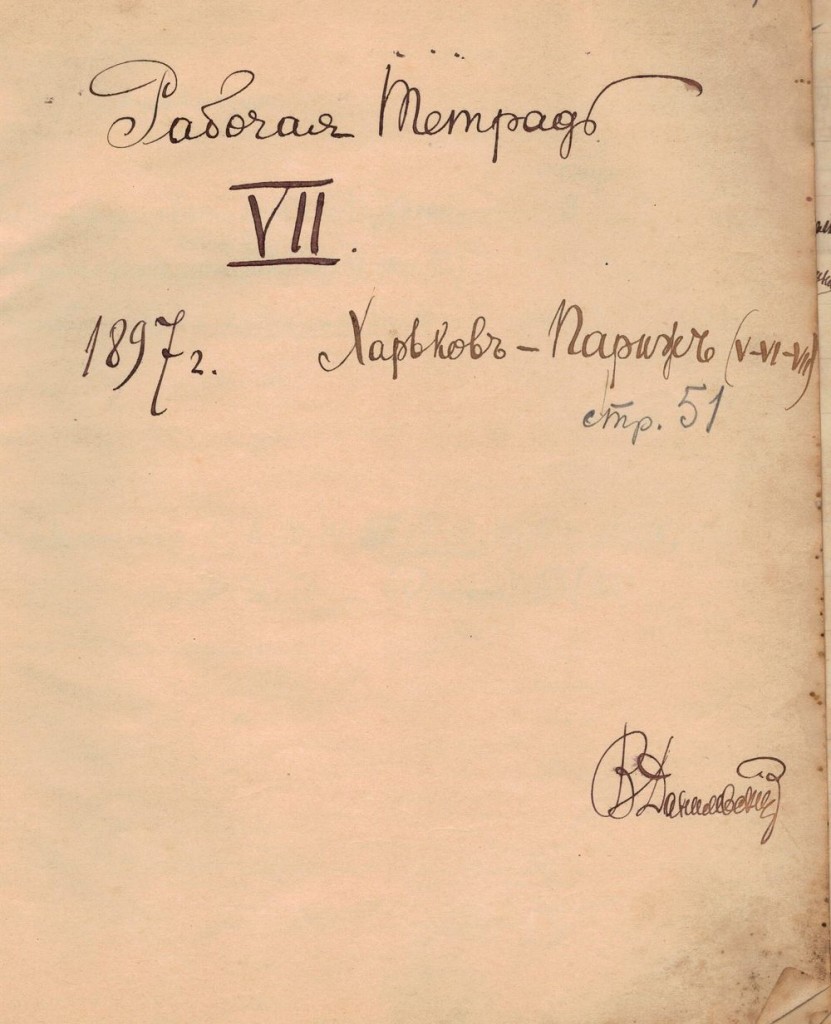 Рабочая Тетрадь
VII.
1897 г. Харьковъ – Парижъ (V-VI-VII)
стр. 51
В Данилевскій